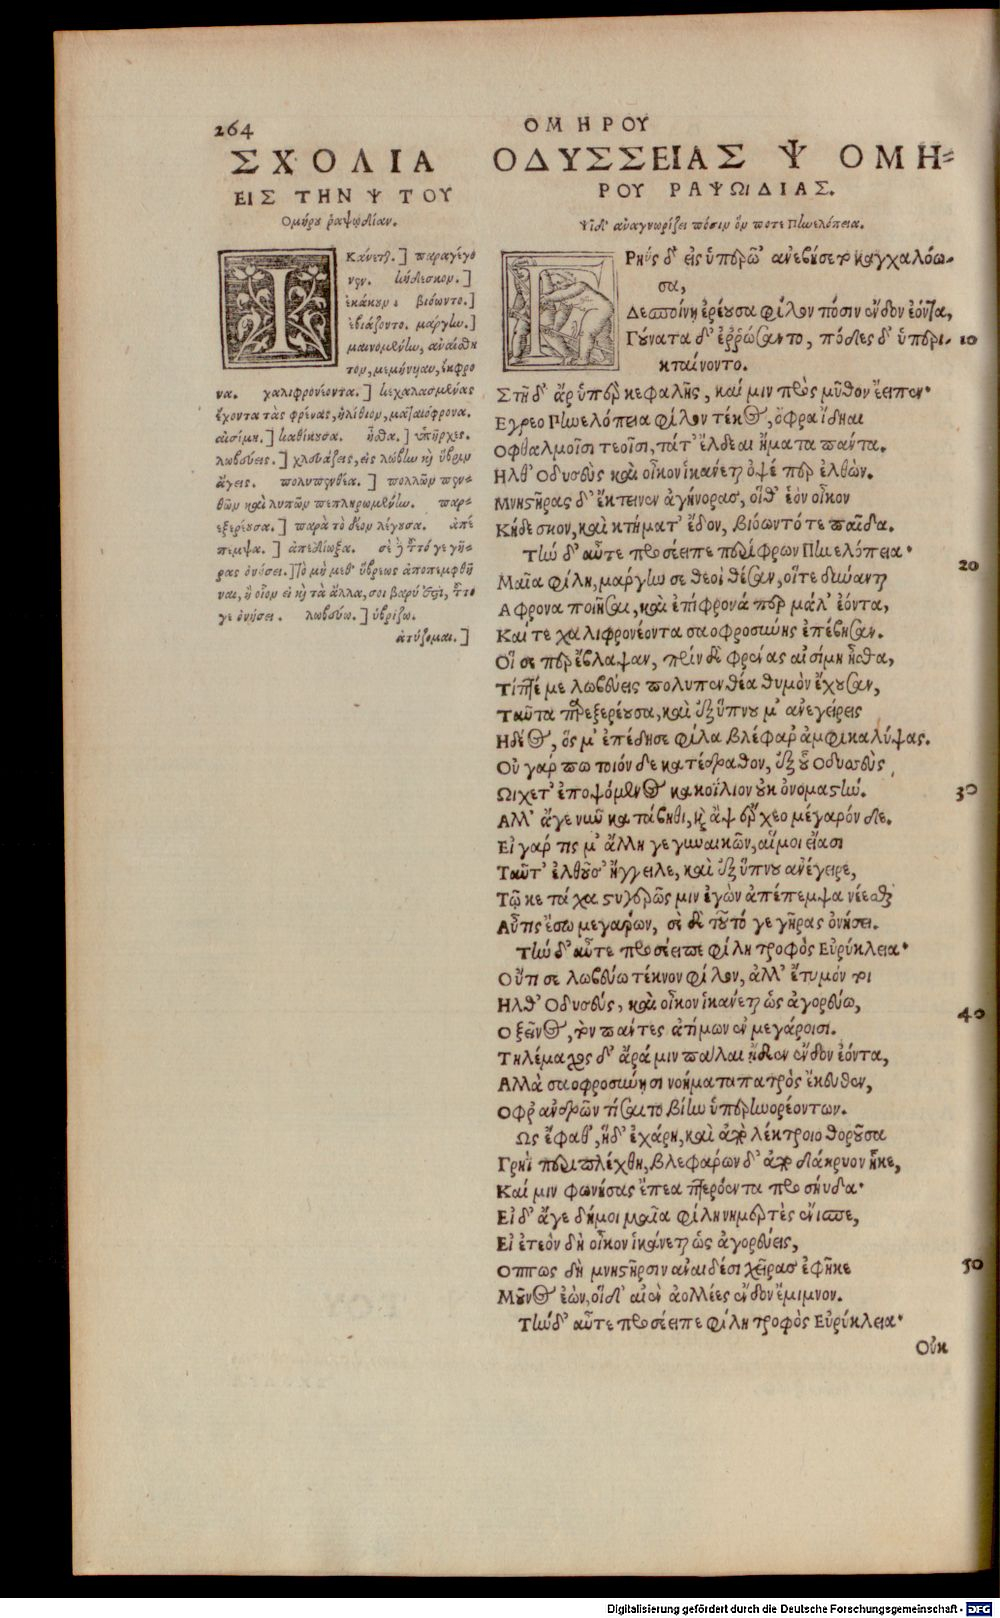 264
ΟΜΗΡΟΥ
ΣΧΟΛΙΑ
ΕΙΣ ΤΗΝ Ψ ΤΟΥ
Ομήρου ῥαψῳδίαν.
Ικάνεται.] παραγέγο
νεν. κήδεσκον.]
ἐκάκουν. βιόωντο.]
ἐβιάζοντο. μάργην.]
μαινομένην, ἀναίσθη
τον, μεμηνυῖαν, ἔκφρο
να. χαλιφρονέοντα.] κεχαλασμένας
ἔχοντα τὰς φρένας, ἠλίθιον, ματαιόφρονα.
αἰσίμη.] καθήκουσα. ἦσθα.] ὑπῆρχες.
λωβεύεις.] χλευάζεις, εἰς λώβην καὶ ὕβριν
ἄγεις. πολυπενθέα.] πολλῶν πεν-
θῶν καὶ λυπῶν πεπληρωμένην. παρ-
εξερέουσα.] παρὰ τὸ δέον λέγουσα. ἀπέ
πεμψα.] ἀπεδίωξα. σὲ δὲ τοῦτό γε γῆ-
ρας ὀνήσει.] τὸ μὴ μεθ' ὕβρεως ἀποπεμφθῆ
ναι, ἢ οἷον εἰ καὶ τὰ ἄλλα, σοι βαρύ ἐστι, τοῦτό
γε ὀνήσει. λωβεύω.] ὑβρίζω.
ἀτύζομαι.]
ΟΔΥΣΣΕΙΑΣ Ψ ΟΜΗ-
ΡΟΥ ΡΑΨΩΙΔΙΑΣ.
Ψῖδ' ἀναγνωρίζει πόσιν ὅν ποτε Πηνελόπεια.
Γρηῢς δ' εἰς ὑπερῷ' ἀνεβήσετο καγχαλόω-
σα,
Δεσποίνῃ ἐρέουσα φίλον πόσιν ἔνδον ἐόντα,
Γούνατα δ' ἐῤῥώσαντο, πόδες δ' ὑπερι-
κταίνοντο.
10
Στῆ δ' ἄρ ὑπὲρ κεφαλῆς, καί μιν πρὸς μῦθον ἔειπεν·
Εγρεο Πηνελόπεια φίλον τέκος, ὄφρα ἴδηαι
Οφθαλμοῖσι τεοῖσι, τάτ' ἔλδεαι ἤματα πάντα.
Ηλθ' Οδυσεὺς καὶ οἶκον ἱκάνεται ὀψέ περ ἐλθών.
Μνηστῆρας δ' ἔκτεινεν ἀγήνορας, οἵθ' ἑὸν οἶκον
Κήδεσκον, καὶ κτήματ' ἔδον, βιόωντό τε παῖδα.
Τὴν δ' αὖτε προσέειπε περίφρων Πηνελόπεια·
20
Μαῖα φίλη, μάργην σε θεοὶ θέσαν, οἵτε δύνανται
Αφρονα ποιῆσαι, καὶ ἐπίφρονά περ μάλ' ἐόντα,
Καί τε χαλιφρονέοντα σαοφροσύνης ἐπέβησαν.
Οἵ σέ περ ἔβλαψαν, πρὶν δὲ φρένας αἰσίμη ἦσθα,
Τίπτέ με λωβεύεις πολυπενθέα θυμὸν ἔχουσαν,
Ταῦτα παρεξερέουσα, καὶ ἐξ ὕπνου μ' ἀνεγείρεις
Ηδέος, ὅς μ' ἐπέδησε φίλα βλέφαρ' ἀμφικαλύψας.
Οὐ γάρ πω τοιόνδε κατέδραθον, ἐξ οὗ Οδυσεὺς
Ωιχετ' ἐποψόμενος κακοΐλιον οὐκ ὀνομαστήν.
30
Αλλ' ἄγε νῦν κατάβηθι, καὶ ἂψ ἔρχεο μέγαρόνδε.
Εἰ γάρ τίς μ' ἄλλη γε γυναικῶν, αἵ μοι ἔασι
Ταῦτ' ἐλθοῦσ' ἤγγειλε, καὶ ἐξ ὕπνου ἀνέγειρε,
Τῷ κε τάχα στυγερῶς μιν ἐγὼν ἀπέπεμψα νέεσθαι
Αὖτις ἔσω μεγάρων, σὲ δὲ τοῦτό γε γῆρας ὀνήσει.
Τὴν δ' αὖτε προσέειπε φίλη τροφὸς Εὐρύκλεια·
Οὔτι σε λωβεύω τέκνον φίλον, ἀλλ' ἔτυμόν τοι
Ηλθ' Οδυσεύς, καὶ οἶκον ἱκάνεται ὡς ἀγορεύω,
Ο ξεῖνος, τὸν πάντες ἀτίμων ἐν μεγάροισι.
40
Τηλέμαχος δ' ἄρα μιν πάλαι ᾔδεεν ἔνδον ἐόντα,
Αλλὰ σαοφροσύνῃσι νοήματα πατρὸς ἔκευθεν,
Οφρ' ἀνδρῶν τίσαιτο βίην ὑπερηνορεόντων.
Ως ἔφαθ', ἡ δ' ἐχάρη, καὶ ἀπὸ λέκτροιο θοροῦσα
Γρηῒ περιπλέχθη, βλεφάρων δ' ἀπὸ δάκρυον ἧκε,
Καί μιν φωνήσας ἔπεα πτερόεντα προσηύδα·
Εἰ δ' ἄγε δή μοι μαῖα φίλη νημερτὲς ἔνισπε,
Εἰ ἐτεὸν δὴ οἶκον ἱκάνεται ὡς ἀγορεύεις,
Οππως δὴ μνηστῆρσιν ἀναιδέσι χεῖρας ἐφῆκε
50
Μοῦνος ἐὼν, οἱ δ' αἰὲν ἀολλέες ἔνδον ἔμιμνον.
Τὴν δ' αὖτε προσέειπε φίλη τροφὸς Εὐρύκλεια·
Οὐκ
Digitalisierung gefördert durch die Deutsche Forschungsgemeinschaft - DFG